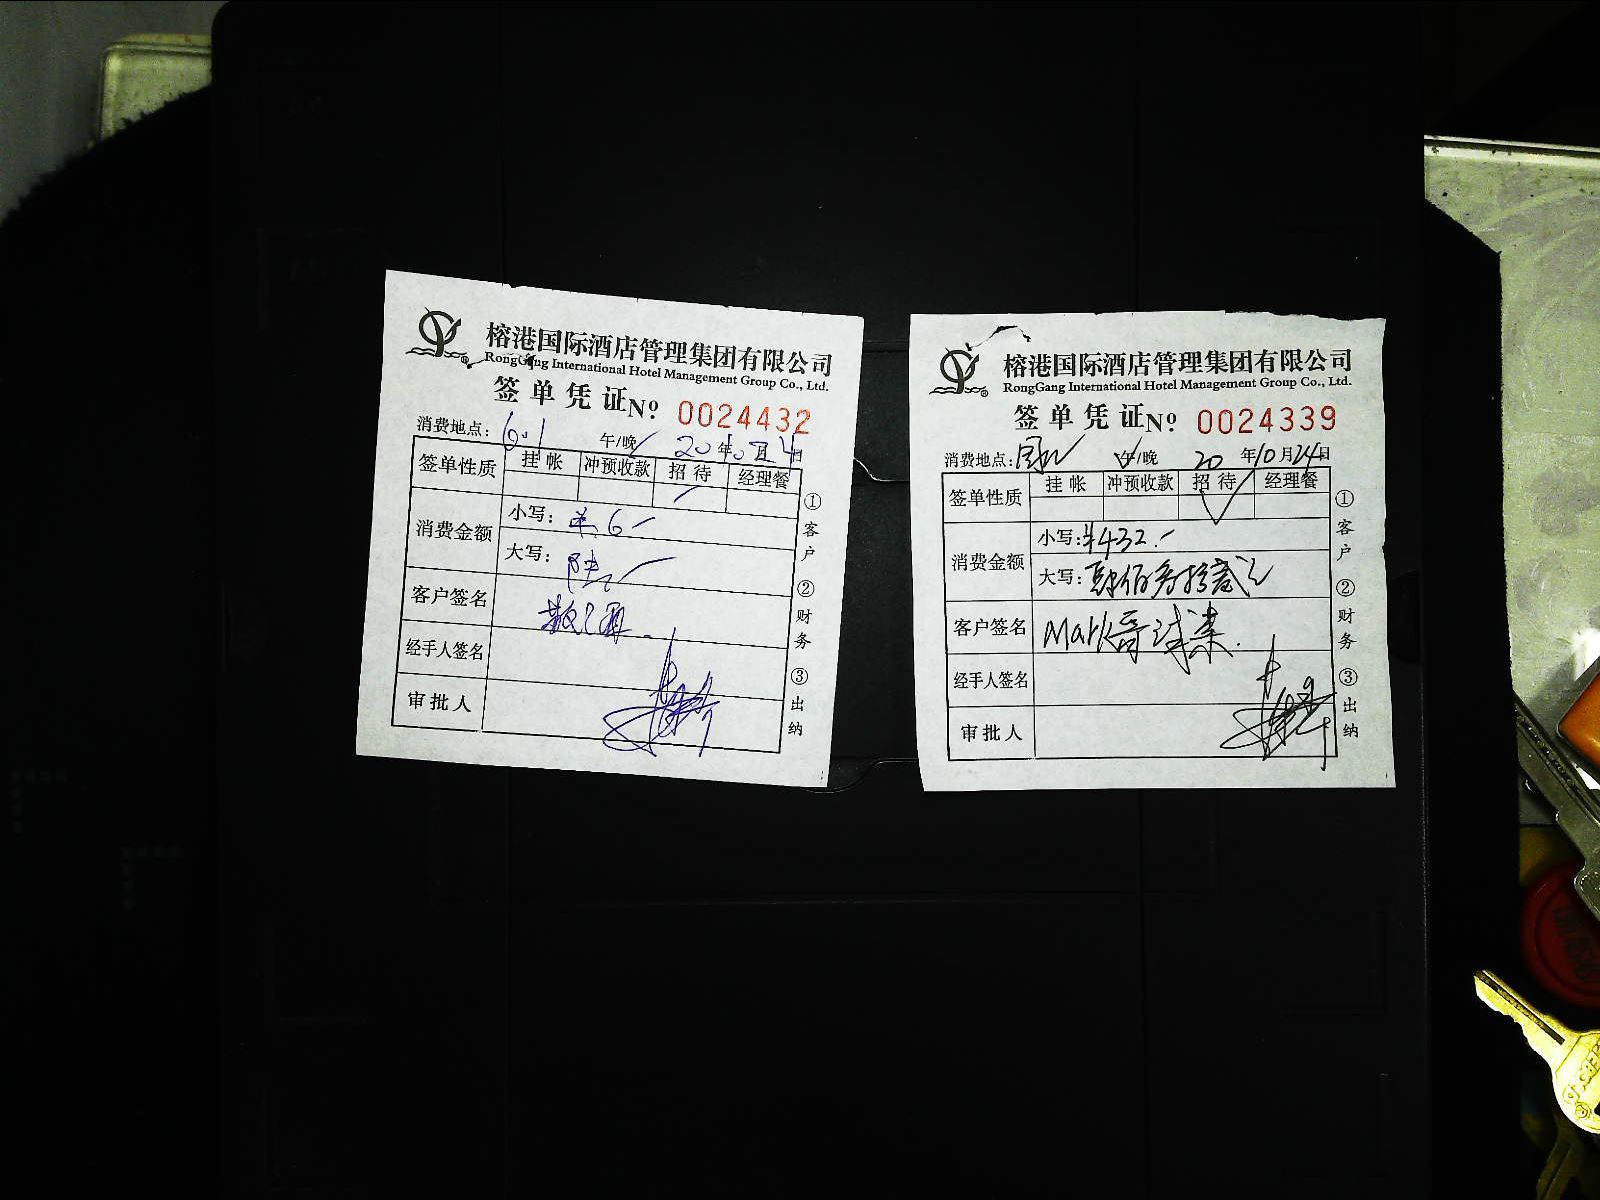 榕港国际酒店管理集团有限公司
RongGang International Hotel Management Group Co., Ltd.
签单凭证 No: 0024432
消费地点: 601 午/晚 20年10月24日
签单性质 挂帐 冲预收款 招待 经理餐
消费金额 小写: 6
大写: 陆
客户签名
经手人签名
审批人
①客户 ②财务 ③出纳
榕港国际酒店管理集团有限公司
RongGang International Hotel Management Group Co., Ltd.
签单凭证 No: 0024339
消费地点: 午/晚 20年10月24日
签单性质 挂帐 冲预收款 招待 经理餐
消费金额 小写: ¥432.
大写: 肆佰叁拾贰元
客户签名 Mark哥
经手人签名
审批人
①客户 ②财务 ③出纳